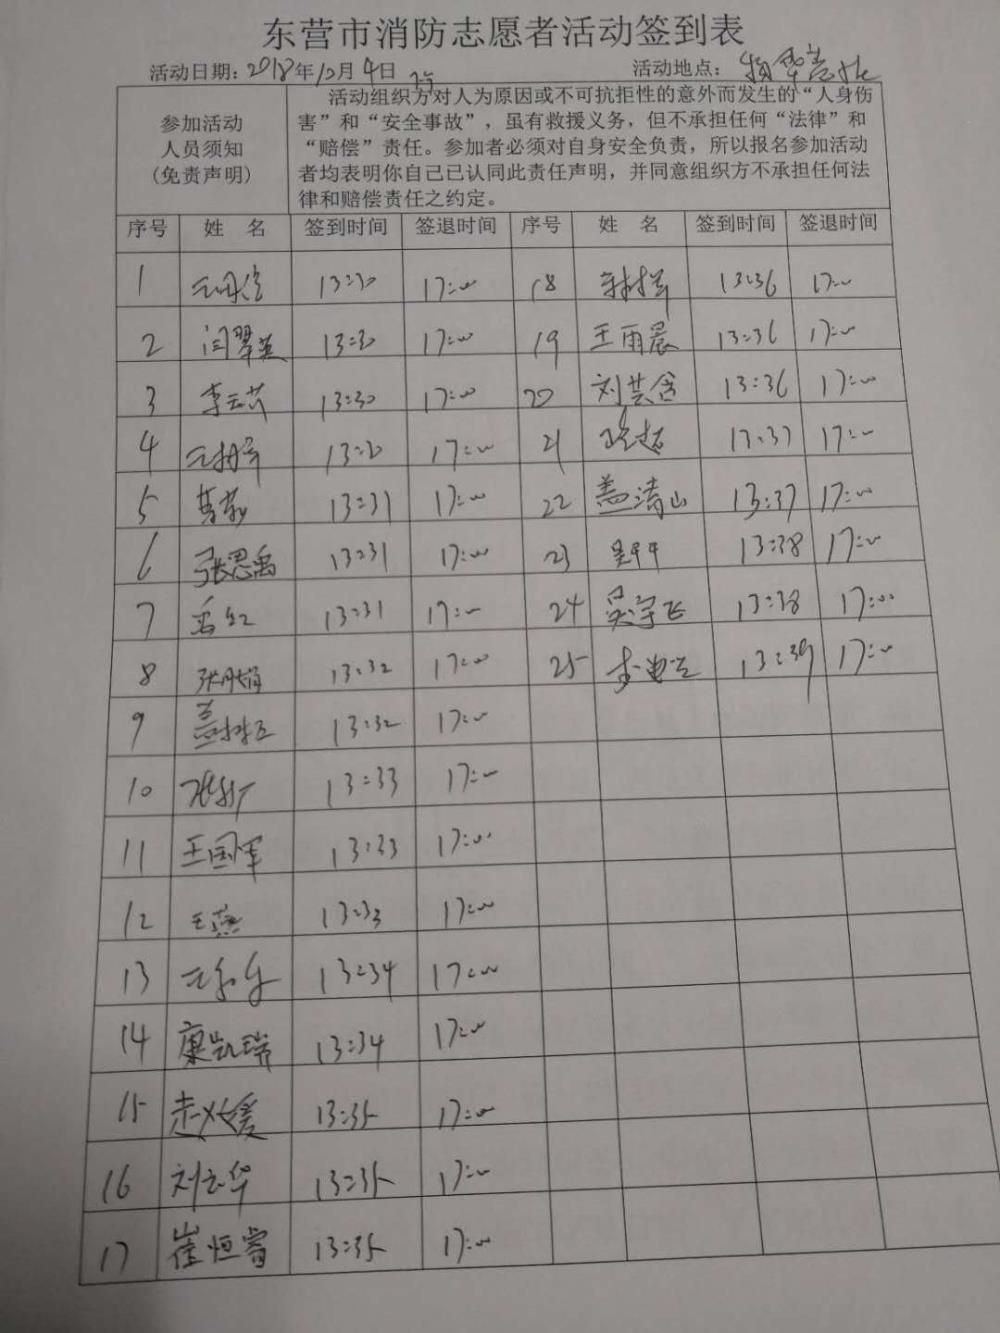 东营市消防志愿者活动签到表
活动日期：2018年12月4日 活动地点：
参加活动
人员须知
(免责声明)
活动组织方对人为原因或不可抗拒性的意外而发生的“人身伤
害”和“安全事故”，虽有救援义务，但不承担任何“法律”和
“赔偿”责任。参加者必须对自身安全负责，所以报名参加活动
者均表明你自己已认同此责任声明，并同意组织方不承担任何法
律和赔偿责任之约定。
序号 姓 名 签到时间 签退时间 序号 姓 名 签到时间 签退时间
1 13:30 17:00 18 13:36 17:00
2 闫翠英 13:30 17:00 19 王雨晨 13:36 17:00
3 李云芳 13:30 17:00 20 刘芸含 13:36 17:00
4 13:30 17:00 21 13:37 17:00
5 13:31 17:00 22 盖清山 13:37 17:00
6 张思禹 13:31 17:00 23 13:38 17:00
7 13:31 17:00 24 吴宇飞 13:38 17:00
8 13:32 17:00 25 13:39 17:00
9 13:32 17:00
10 13:33 17:00
11 王国军 13:33 17:00
12 王燕 13:33 17:00
13 13:34 17:00
14 康凯瑞 13:34 17:00
15 13:35 17:00
16 刘云华 13:35 17:00
17 崔恒睿 13:35 17:00